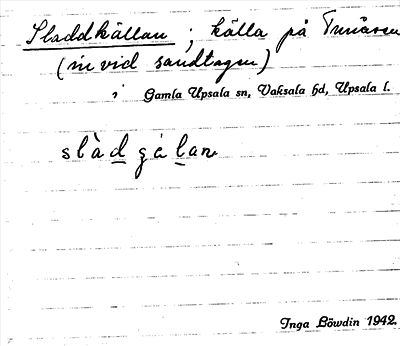 Sladdkällan ; källa på Tunåsen
(in vid sandtagen)
i Gamla Upsala sn, Vaksala hd, Upsala l.
slàd gálan
Inga Löwdin 1942.